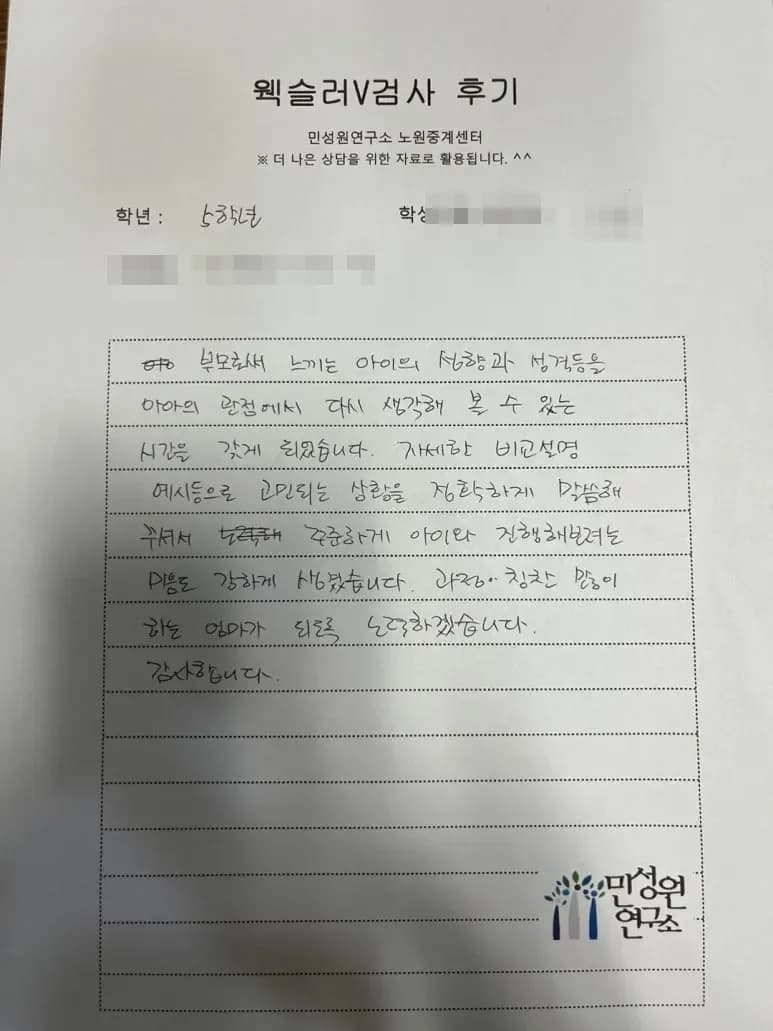 웩슬러V검사 후기
민성원연구소 노원중계센터
※ 더 나은 상담을 위한 자료로 활용됩니다. ^^
학년 : 5학년 학생
부모로써 느끼는 아이의 성향과 성격등을
아이의 관점에서 다시 생각해 볼 수 있는
시간을 갖게 되었습니다. 자세한 비교설명
예시등으로 고민되는 상황을 정확하게 말씀해
주셔서 노력해 꾸준하게 아이와 진행해보려는
마음도 강하게 생겼습니다. 과정 칭찬 많이
하는 엄마가 되도록 노력하겠습니다.
감사합니다.
민성원
연구소